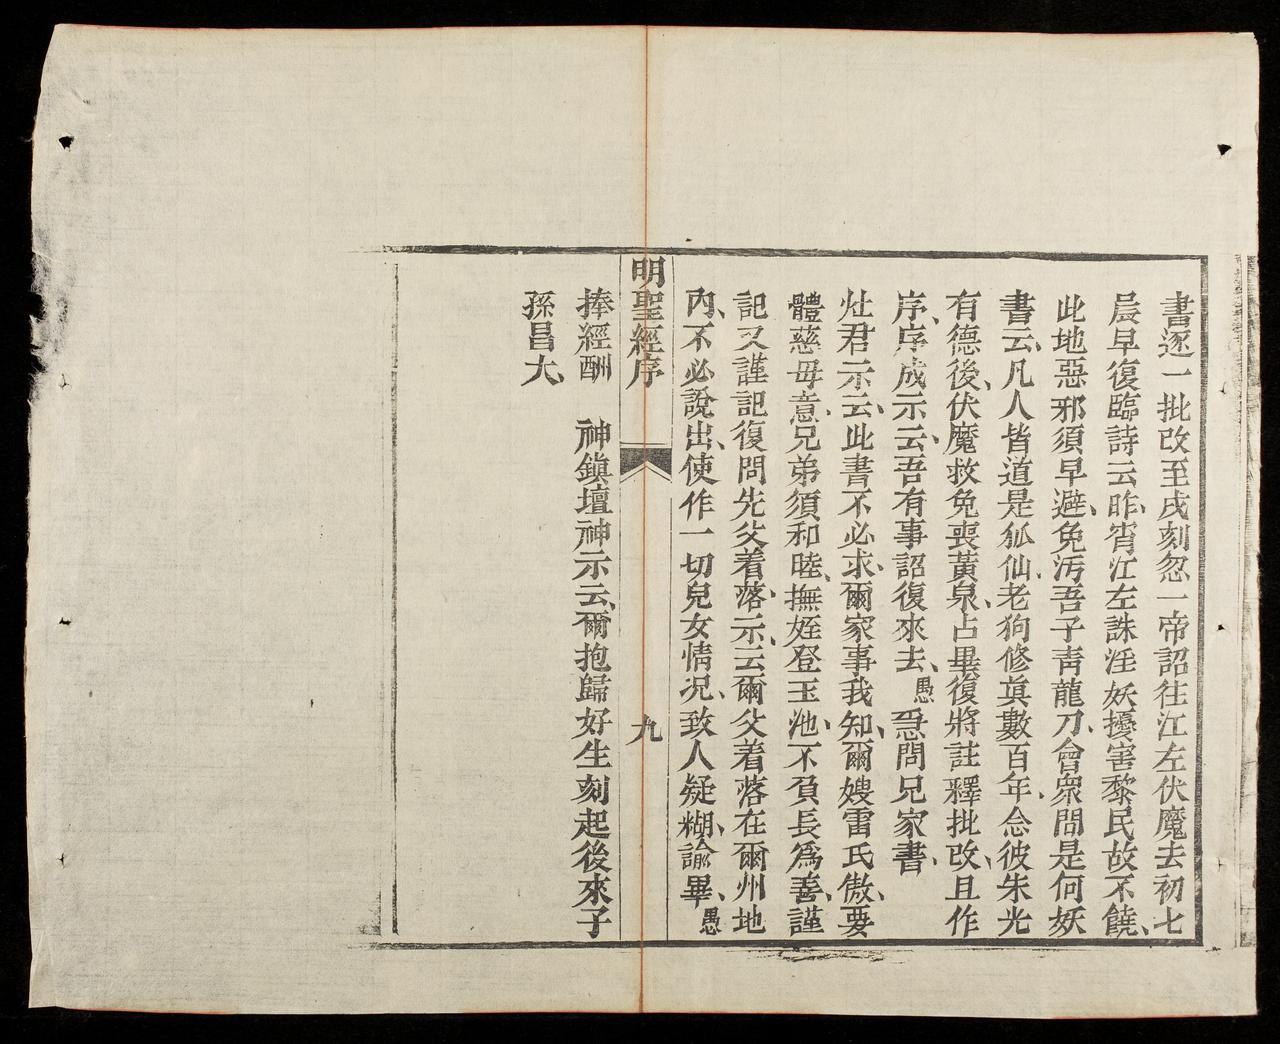 書逐一批改至戌刻忽一帝詔往江左伏魔去初七
晨早復臨詩云昨宵江左誅淫妖擾害黎民故不饒、
此地惡邪須早避、免汚吾子靑龍刀、會衆問是何妖
書云、凡人皆道是狐仙、老狗修眞數百年、念彼朱光
有德後、伏魔救免喪黃泉、占畢復將註釋批改、且作
序、序成示云、吾有事詔復來去、愚急問兄家書、
灶君示云、此書不必求、爾家事我知、爾嫂雷氏傲、要
體慈毋意、兄弟須和睦、撫姪登玉池、不負長爲善、謹
記又謹記復問先父着落、示云爾父着落在爾州地
內、不必說出、使作一切兒女情况、致人疑糊、諭畢、愚
明聖經序
九
捧經酬　神鎭壇神示云、爾抱歸好生刻起後來子
孫昌大、